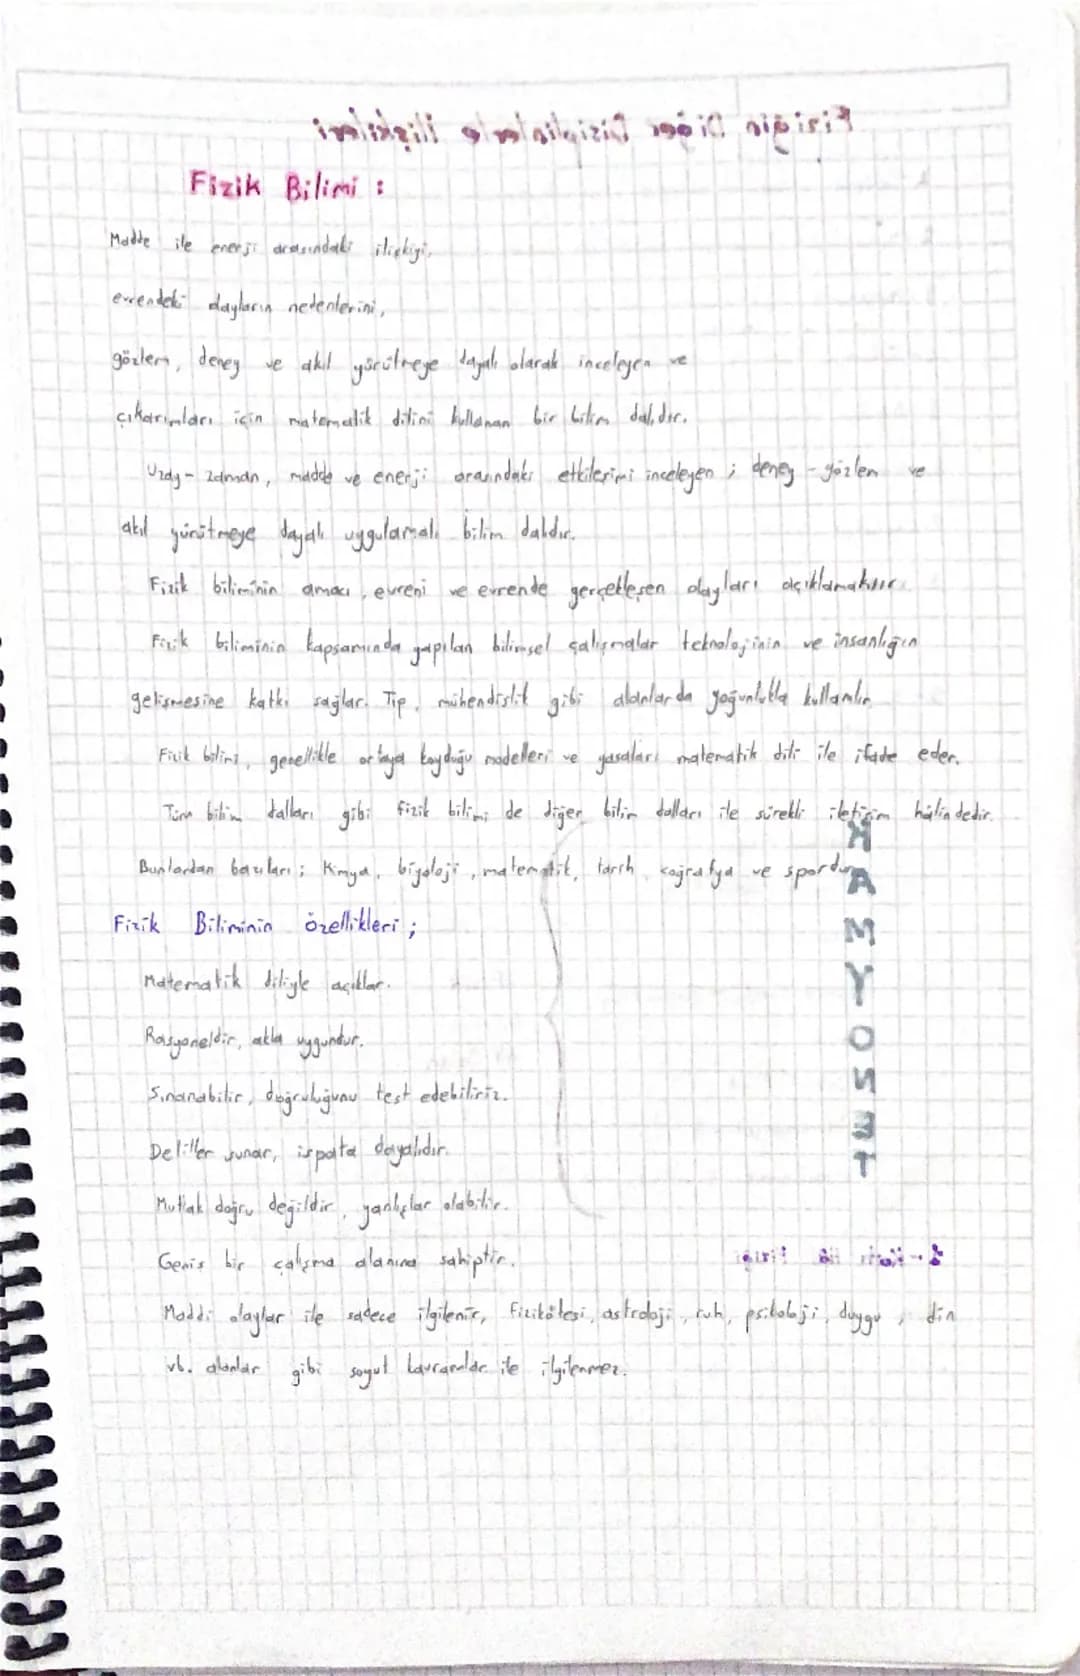 Fiziğin Diğer Disiplinlerle İlişkileri
Fizik Bilimi :
Madde ile enerji arasındaki ilişkiyi,
evrendeki olayların nedenlerini,
gözlem, deney ve akıl yürütmeye dayalı olarak inceleyen ve
çıkarımları için matematik dilini kullanan bir bilim dalıdır.
Uzay - zaman, madde ve enerji arasındaki etkileşimi inceleyen ; deney - gözlem ve
akıl yürütmeye dayalı uygulamalı bilim dalıdır.
Fizik biliminin amacı, evreni ve evrende gerçekleşen olayları açıklamaktır.
Fizik biliminin kapsamında yapılan bilimsel çalışmalar teknolojinin ve insanlığın
gelişmesine katkı sağlar. Tıp, mühendislik gibi alanlarda yoğunlukla kullanılır.
Fizik bilimi, genellikle ortaya koyduğu modelleri ve yasaları matematik dili ile ifade eder.
Tüm bilim dalları gibi fizik bilimi de diğer bilim dalları ile sürekli iletişim hâlindedir.
Bunlardan bazıları ; kimya, biyoloji, matematik, tarih, coğrafya ve spordur.
Fizik Biliminin özellikleri ;
Matematik diliyle açıklar.
Rasyoneldir, akla uygundur.
Sınanabilir, doğruluğunu test edebiliriz.
Deliller sunar, ispata dayalıdır.
Mutlak doğru değildir, yanlışlar olabilir.
Geniş bir çalışma alanına sahiptir.
Maddi olaylar ile sadece ilgilenir, fizikötesi, astroloji, ruh, psikoloji, duygu, din
vb. alanlar gibi soyut kavramlar ile ilgilenmez.